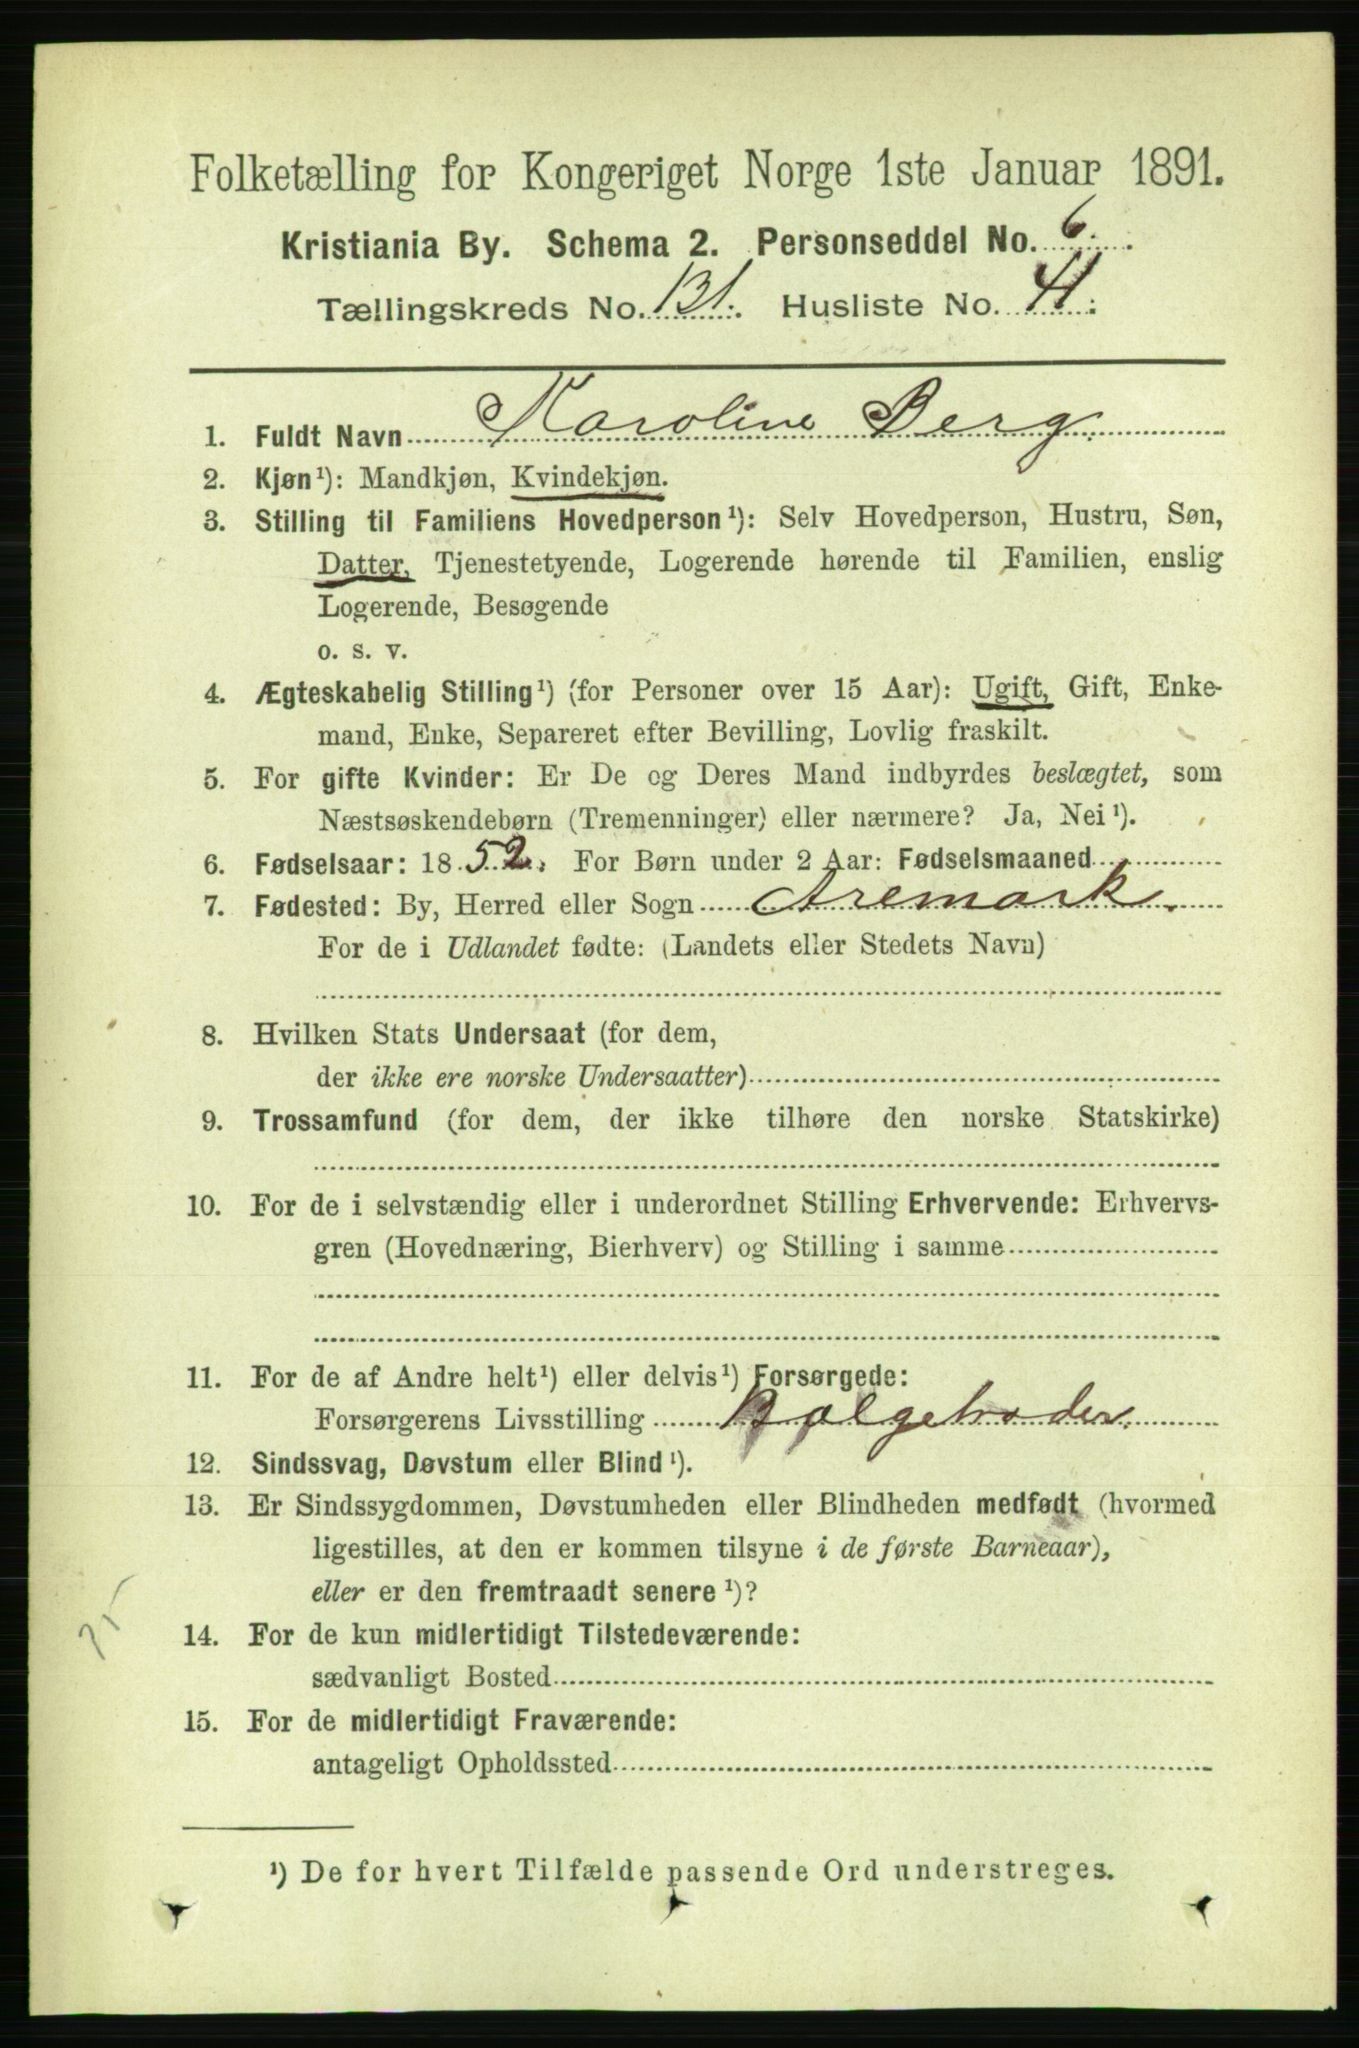 Folketælling for Kongeriget Norge 1ste Januar 1891.
Kristiania By. Schema 2. Personseddel No. 6.
Tællingskreds No. 131. Husliste No. 41.
1. Fuldt Navn Karoline Berg
2. Kjøn¹): Mandkjøn, Kvindekjøn.
3. Stilling til Familiens Hovedperson¹): Selv Hovedperson, Hustru, Søn,
Datter, Tjenestetyende, Logerende hørende til Familien, enslig
Logerende, Besøgende
o. s. v.
4. Ægteskabelig Stilling¹) (for Personer over 15 Aar): Ugift, Gift, Enke-
mand, Enke, Separeret efter Bevilling, Lovlig fraskilt.
5. For gifte Kvinder: Er De og Deres Mand indbyrdes beslægtet, som
Næstsøskendebørn (Tremenninger) eller nærmere? Ja, Nei¹).
6. Fødselsaar: 1852. For Børn under 2 Aar: Fødselsmaaned
7. Fødested: By, Herred eller Sogn Aremark.
For de i Udlandet fødte: (Landets eller Stedets Navn)
8. Hvilken Stats Undersaat (for dem,
der ikke ere norske Undersaatter)
9. Trossamfund (for dem, der ikke tilhøre den norske Statskirke)
10. For de i selvstændig eller i underordnet Stilling Erhvervende: Erhvervs-
gren (Hovednæring, Bierhverv) og Stilling i samme
11. For de af Andre helt¹) eller delvis¹) Forsørgede:
Forsørgerens Livsstilling
12. Sindssvag, Døvstum eller Blind¹).
13. Er Sindssygdommen, Døvstumheden eller Blindheden medfødt (hvormed
ligestilles, at den er kommen tilsyne i de første Barneaar),
eller er den fremtraadt senere¹)?
14. For de kun midlertidigt Tilstedeværende:
sædvanligt Bosted
15. For de midlertidigt Fraværende:
antageligt Opholdssted
¹) De for hvert Tilfælde passende Ord understreges.